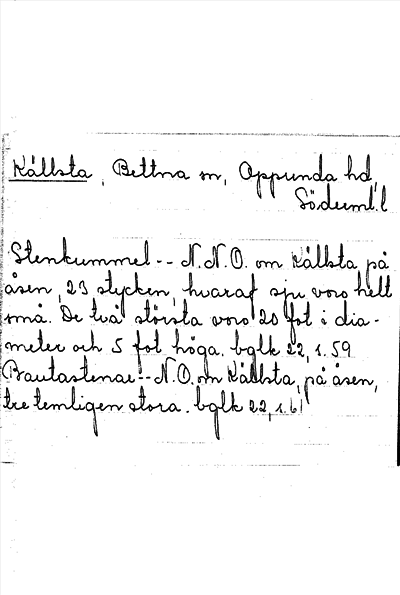 Kållsta, Bettna sn, Oppunda hd,
Söderml. l
Stenkummel -- N.N.O. om Kållsta på
åsen, 23 stycken, hvaraf sju voro hellt
små. De två största voro 20 fot i dia-
meter och 5 fot höga. bglk 22, 1. 59
Bautastenar -- N.O. om Kållsta, på åsen,
tre temligen stora. bglk 22, 1. 61